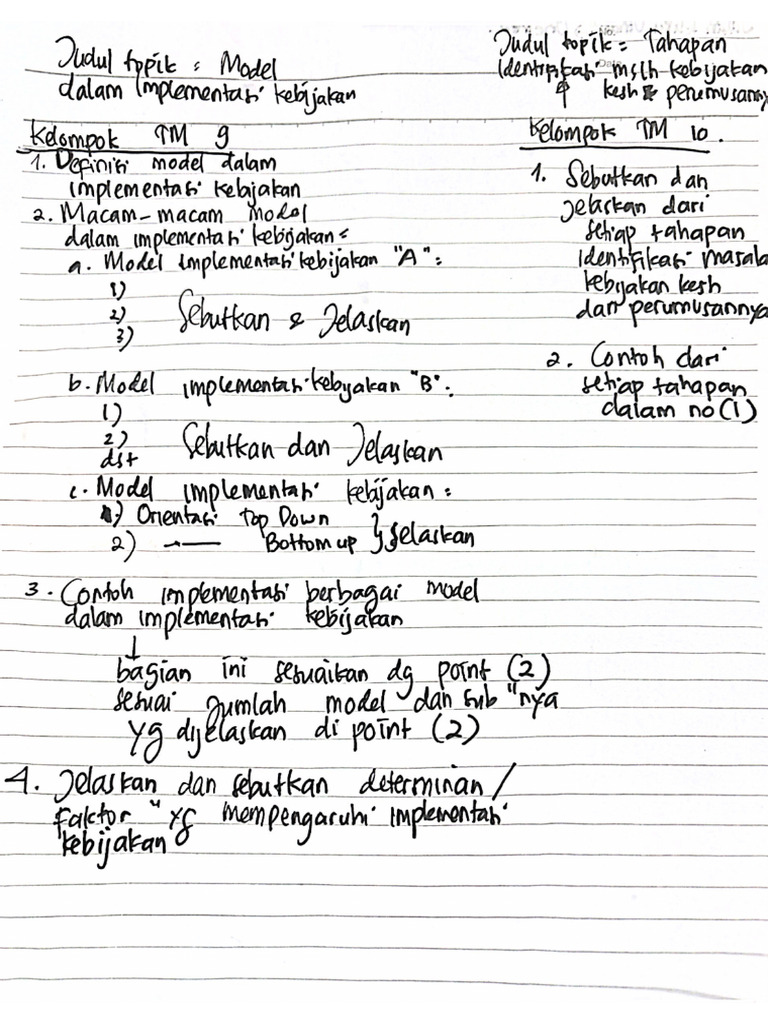 Judul topik : Model
dalam Implementasi kebijakan
Kelompok TM 9
1. Definisi model dalam
implementasi kebijakan
2. Macam-macam model
dalam implementasi kebijakan :
a. Model implementasi kebijakan "A" :
1)
2) Sebutkan & Jelaskan
3)
b. Model implementasi kebijakan "B" :
1)
2) Sebutkan dan Jelaskan
dst
c. Model implementasi kebijakan :
1) Orientasi Top Down
2) —"— Bottom up } Jelaskan
3. Contoh implementasi berbagai model
dalam implementasi kebijakan
↓
bagian ini sesuaikan dg point (2)
sesuai jumlah model dan sub "nya
yg dijelaskan di point (2)
4. Jelaskan dan sebutkan determinan /
faktor " yg mempengaruhi implementasi
kebijakan
Judul topik = Tahapan
Identifikasi mslh kebijakan
kesh & perumusannya
Kelompok TM 10.
1. Sebutkan dan
jelaskan dari
setiap tahapan
identifikasi masala
kebijakan kesh
dan perumusannya
2. Contoh dari
setiap tahapan
dalam no (1)